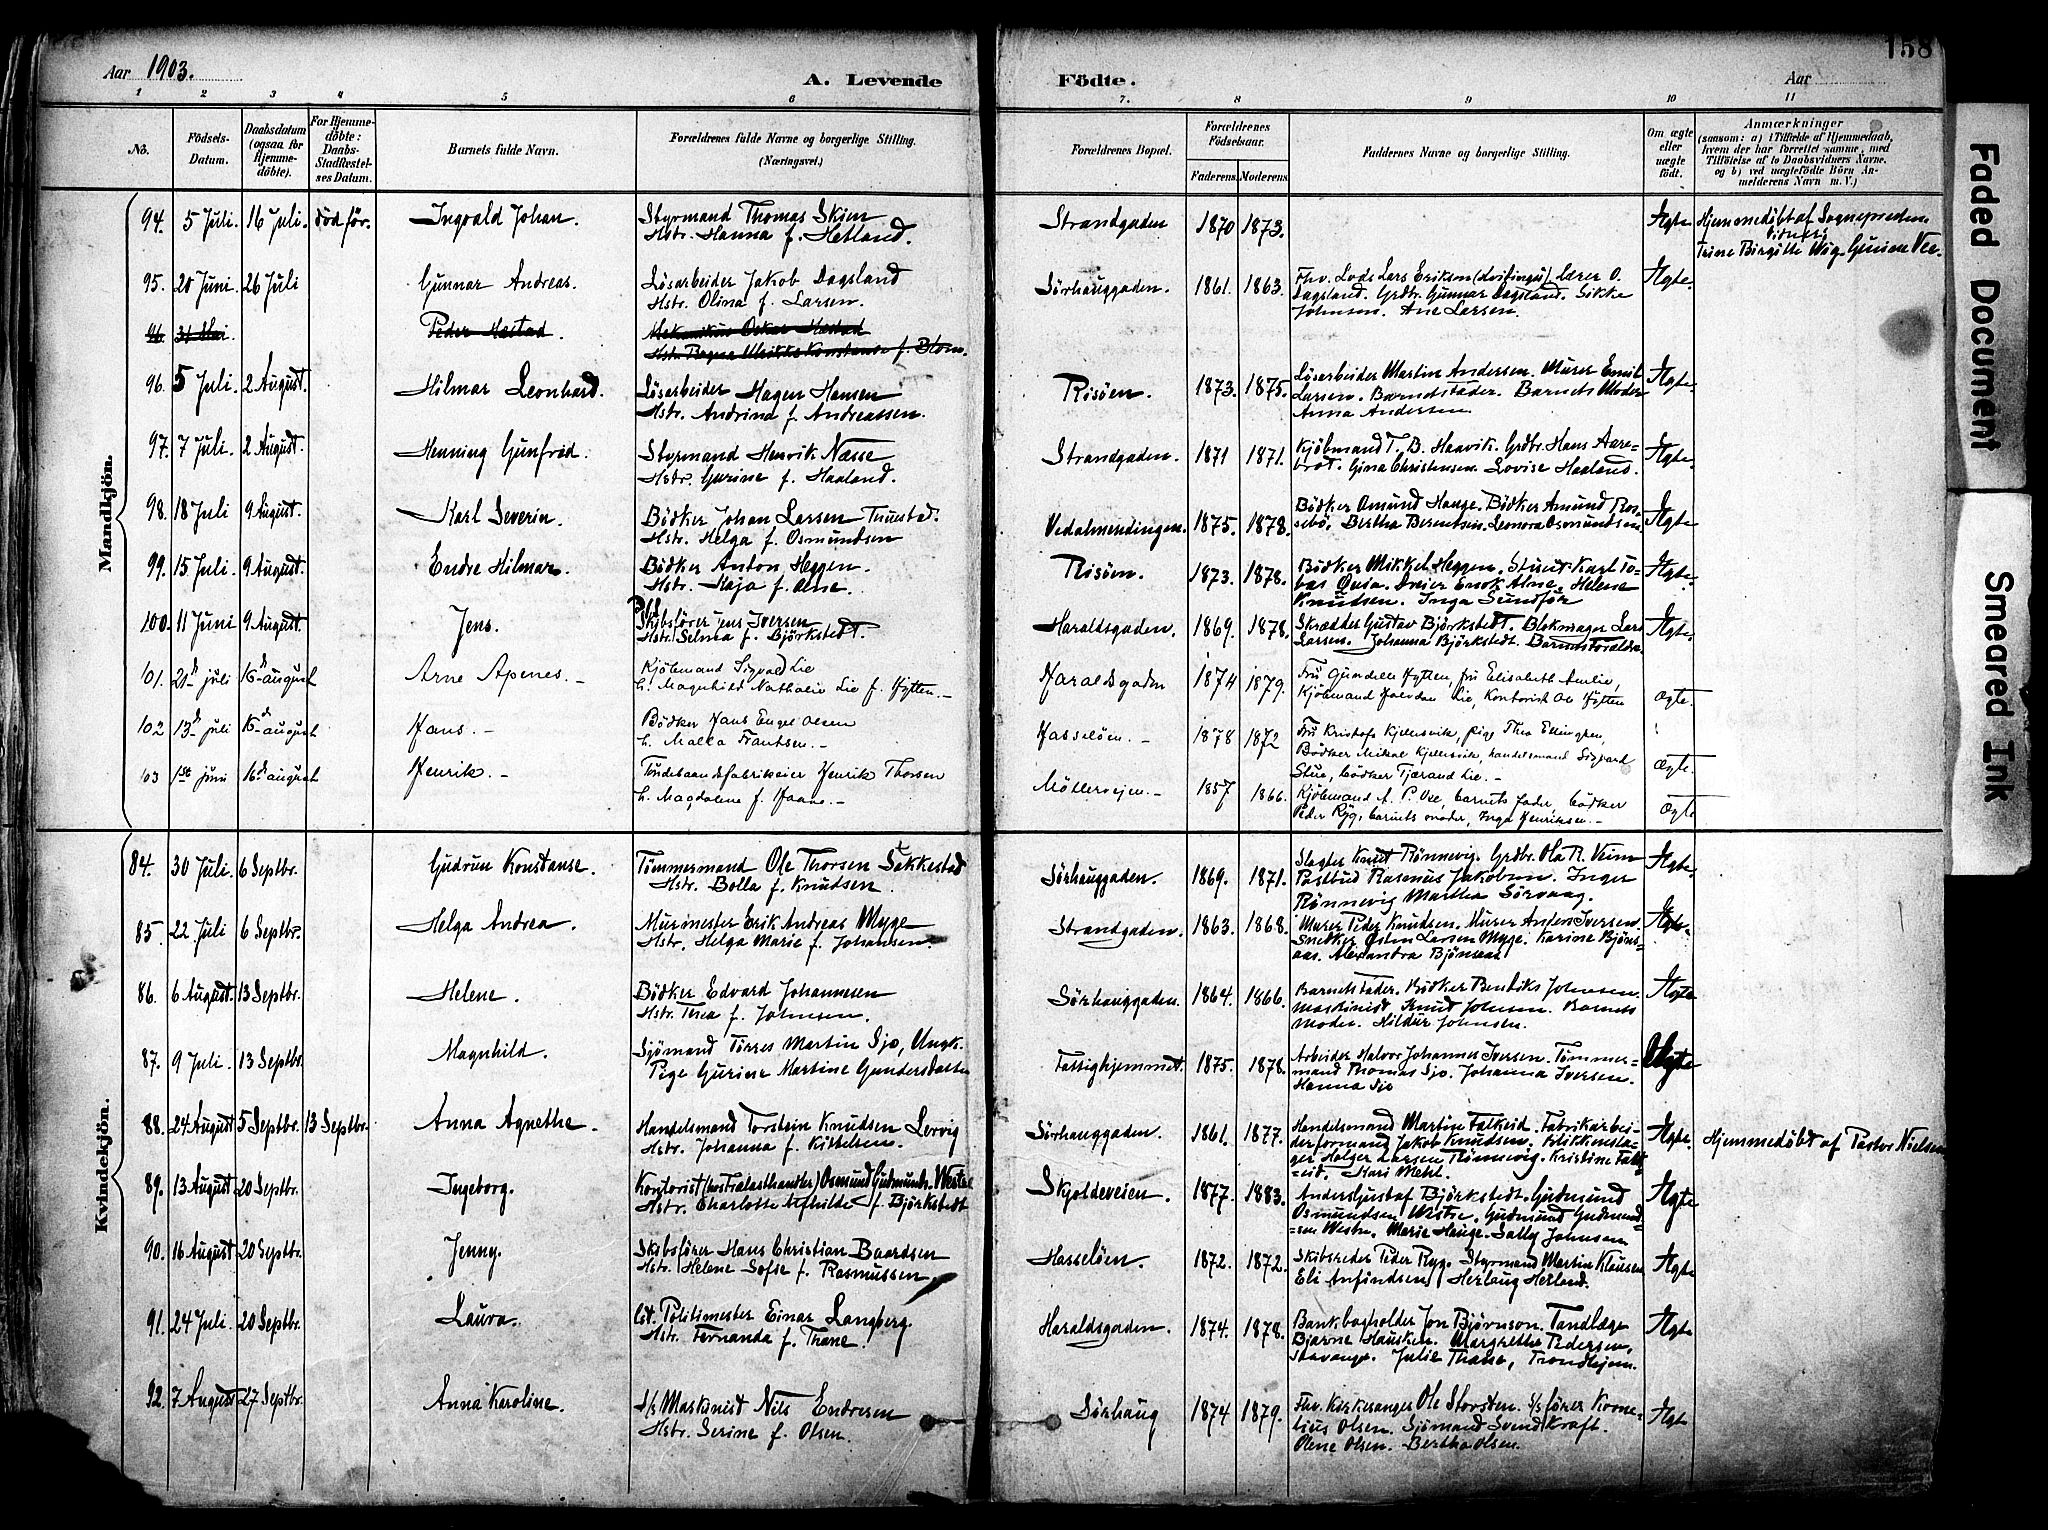 158
Aar 1903.
A. Levende Födte.
Aar
1 2 3 4 5 6 7. 8 9 10 11
No.
Födsels-Datum.
Daabsdatum (ogsaa for Hjemme-döbte).
For Hjemme-döbte: Daabs-Stadfæstel-ses Datum.
Barnets fulde Navn.
Forældrenes fulde Navne og borgerlige Stilling. (Næringsvei.)
Forældrenes Bopæl.
Forældrenes Födselsaar.
Faderens. Moderens.
Faddernes Navne og borgerlige Stilling.
Om ægte eller uægte födt.
Anmærkninger
(saasom: a) i Tilfælde af Hjemmedaab,
hvem der har forrettet samme, med
Tilföielse af to Daabsvidners Navne,
og b) ved uægtefödte Börn An-
melderens Navn m. V.)
Mandkjön.
94. 5 Juli. 16 Juli. död før. Ingvald Johan. Styrmand Thomas Skjen
Hstr. Hanna f. Hetland. Strandgaden 1870 1873. Ægte Hjemmedöbt af Sognepresten.
Vidner:
Trine Birgitte
95. 20 Juni. 26 Juli Gunnar Andreas. Løsarbeider Jakob Dagsland
Hstr. Olina f. Larsen. Sörhauggaden. 1861. 1863. Fhv. Lods Lars Eriksen Lærer O.
Dagsland. Grdbr. Gunnar Dagsland. Sikke
Johnsen. Ane Larsen. Ægte.
96. 31 Mai Peder Mæstad Mekanikus Oskar Mæstad
Hstr. Ulrikke Konstanse f. Blom.
96. 5 Juli. 2 August. Hilmar Leonhard. Løsarbeider Hagen Hansen
Hstr. Andrina f. Andreassen. Risöen. 1873. 1875. Løsarbeider Martin Andersen. Murer Emil
Larsen. Barnets Fader. Barnets Moder
Anna Andersen Ægte
97. 7 Juli. 2 August. Henning Gunfred. Styrmand Henrik Næsse
Hstr. Gurine f. Haaland. Strandgaden. 1871 1871. Kjöbmand T. B. Haavik. Grdbr. Hans Aare-
brot. Gina Christensen. Lovise Haaland. Ægte.
98. 18 Juli 9 August. Karl Severin. Bödker Johan Larsen Tuestad.
Hstr. Helga f. Osmundsen 1875. 1878. Bödker Omund Hauge. Bödker Amund Ros-
sebö. Bertha Berentsen. Leonora Osmundsen Ægte
99. 15 Juli. 9 August. Endre Hilmar. Bödker Anton Heggen.
Hstr. Maja f. Risöen. 1873. 1878. Bödker Mikkel Heggen. Karl To-
bas Helene
Knudsen. Inga Sundför Ægte
100. 11 Juni 9 August. Jens. Skibsförer Jens Iversen
Hstr. Selma f. Björkstedt. Haraldsgaden. 1869. 1878. Skrædder Gustav Björkstedt. Lars
Larsen. Johanna Björkstedt. Barnets Forældre Ægte
101. 21de juli 16de august Arne Apenes. Kjöbmand Sigvard Lie
h. Magnhild Nathalie Lie f. Hytten. Haraldsgaden 1874 1879. Fru Hytten, fru Elisabeth Amlie,
Kjöbmand Halvdan Lie, Kontorist Ole Hytten Ægte.
102 13de juli 16de august Hans. Bödker Hans Engel Olsen
h. Malla Frantsen. Hasselöen. 1878 1872 Fru Kristofa Kjellesvik, pige Thea Ellingsen,
Bödker Mikal Kjellesvik, handelsmand Sigvard
Stue, bödker Tjærand Lie. Ægte.
103 1ste juni 16de august Henrik. Töndebaandsfabrikeier Henrik Thorsen
h. Magdalene f. Haave. Möllerveien. 1857 1866. Kjöbmand A. P. Vee, barnets fader, bödker
Peder Ryg, barnets moder, Inga Henriksen. Ægte
Kvindekjön.
84. 30 Juli. 6 Septbr. Gudrun Konstanse. Tömmermand Ole Thorsen Sekkestad
Hstr. Bolla f. Knudsen. Sörhauggaden. 1869. 1871. Slagter Knut Rönnevig. Grdbr. Ola R. Veim
Postbud Rasmus Jakobsen. Inger
Rönnevig Martha Sörvaag. Ægte.
85. 22 Juli 6 Septbr. Helga Andrea. Murmester Erik Andreas Myge
Hstr. Helga Marie f. Johansen. Strandgaden. 1863. 1868. Murer Peder Knudsen. Murer Anders Iversen.
Snedker Östen Larsen Myge. Karine Björns-
aas. Alexandra Björnsaas Ægte.
86. 6 August. 13 Septbr. Helene. Bödker Edvard Johannesen
Hstr. Thea f. Johnsen. Sörhauggaden. 1864. 1866. Barnets Fader. Bödker Bendiks Johnsen.
Maskinist Knud Johnsen. Barnets
Moder. Hildur Johnsen. Ægte
87. 9 Juli. 13 Septbr. Magnhild. Sjömand Törres Martin Sjo, Ungk.
Pige Gurine Martine Gundersdatter Fattighjemmet. 1875. 1878. Arbeider Halvor Johannes Iversen. Tömmer-
mand Thomas Sjo. Johanna Iversen.
Hanna Sjo Uægte
88. 24 August 5 Septbr. 13 Septbr. Anna Agnethe. Handelsmand Torstein Knudsen Lervig
Hstr. Johanna f. Kittelsen. Sörhauggaden. 1861. 1877. Handelsmand Martin Falkeid. Fabrikarbei-
derformand Jakob Knudsen. Blikkensla-
ger Holger Larsen Rönnevig. Kristine Falk-
eid. Kari Mehl. Ægte. Hjemmedöbt af Pastor Nielsen
89. 13 August 20 Septbr. Ingeborg. Kontorist Osmund Gudmunds. Westre
Hstr. Charlotte Alfhilde f. Björkstedt Skjoldeveien. 1877. 1883. Anders Gustaf Björkstedt. Gudmund
Osmundsen Westre. Gudmund Gudmund-
sen Westre. Marie Hauge. Sally Johnsen Ægte
90. 16 August 20 Septbr. Jenny. Skibsförer Hans Christian Baardsen
Hstr. Helene Sofie f. Rasmussen. Hasselöen. 1872. 1872. Skibsreder Peder Ryg. Styrmand Martin Klausen
Eli Anfindsen. Herlaug Hetland. Ægte
91. 24 Juli. 20 Septbr. Laura. Cst. Politimester Einar Langberg.
Hstr. Fernanda f. Thane. Haraldsgaden. 1874. 1878. Bankbogholder Jon Björnson. Tandlæge
Bjarne Hausken. Margrethe Pedersen,
Stavanger. Julie Thane, Trondhjem. Ægte
92. 7 August 27 Septbr. Anna Karoline. S/s Maskinist Nils Endresen
Hstr. Serine f. Olsen. Sörhaug 1874 1879. Fhv. Kirkesanger Ole Storsten. S/s förer Korne-
lius Olsen. Sjömand Svend Kraft.
Olene Olsen. Bertha Olsen. Ægte
Faded Document
Smeared Ink